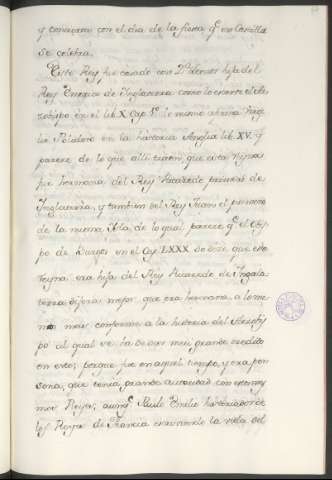 y concuerda con el dia de la fiesta q.e en Castilla
se celebra.
Este Rey fue casado con D.a Leonor hija del
Rey Enrrico de Inglaterra como lo escrive el Ar-
zobispo en el lib. X Cap. lo mismo afirma Virgi-
lio Polidoro en la historia Anglia lib. XV. y
parece de lo que alli tratan, que esta Reyna
fue hermana del Rey Ricaredo primero de
Inglaterra, y tambien del Rey Juan el primero
de la misma Isla, de lo qual parece q.e el Obis-
po de Burgos en el Cap. LXXX do dice, que esta
Reyna era hija del Rey Ricaredo de Ingala-
terra dijera mejor que era hermana, a lo me-
nos mas conforme a la historia del Arzobis-
po al qual se ha de dar mui grande credito
en esto; porque fue en aquel tiempo, y era per-
sona, que tenia grande autoridad con estos mis-
mos Reyes; aunq.e Paulo Emilio historiador de
los Reyes de Francia escriviendo la vida del